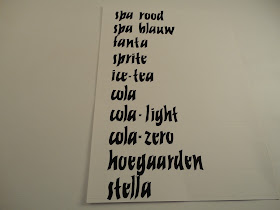 spa rood
spa blauw
fanta
sprite
ice-tea
cola
cola-light
cola-zero
hoegaarden
stella